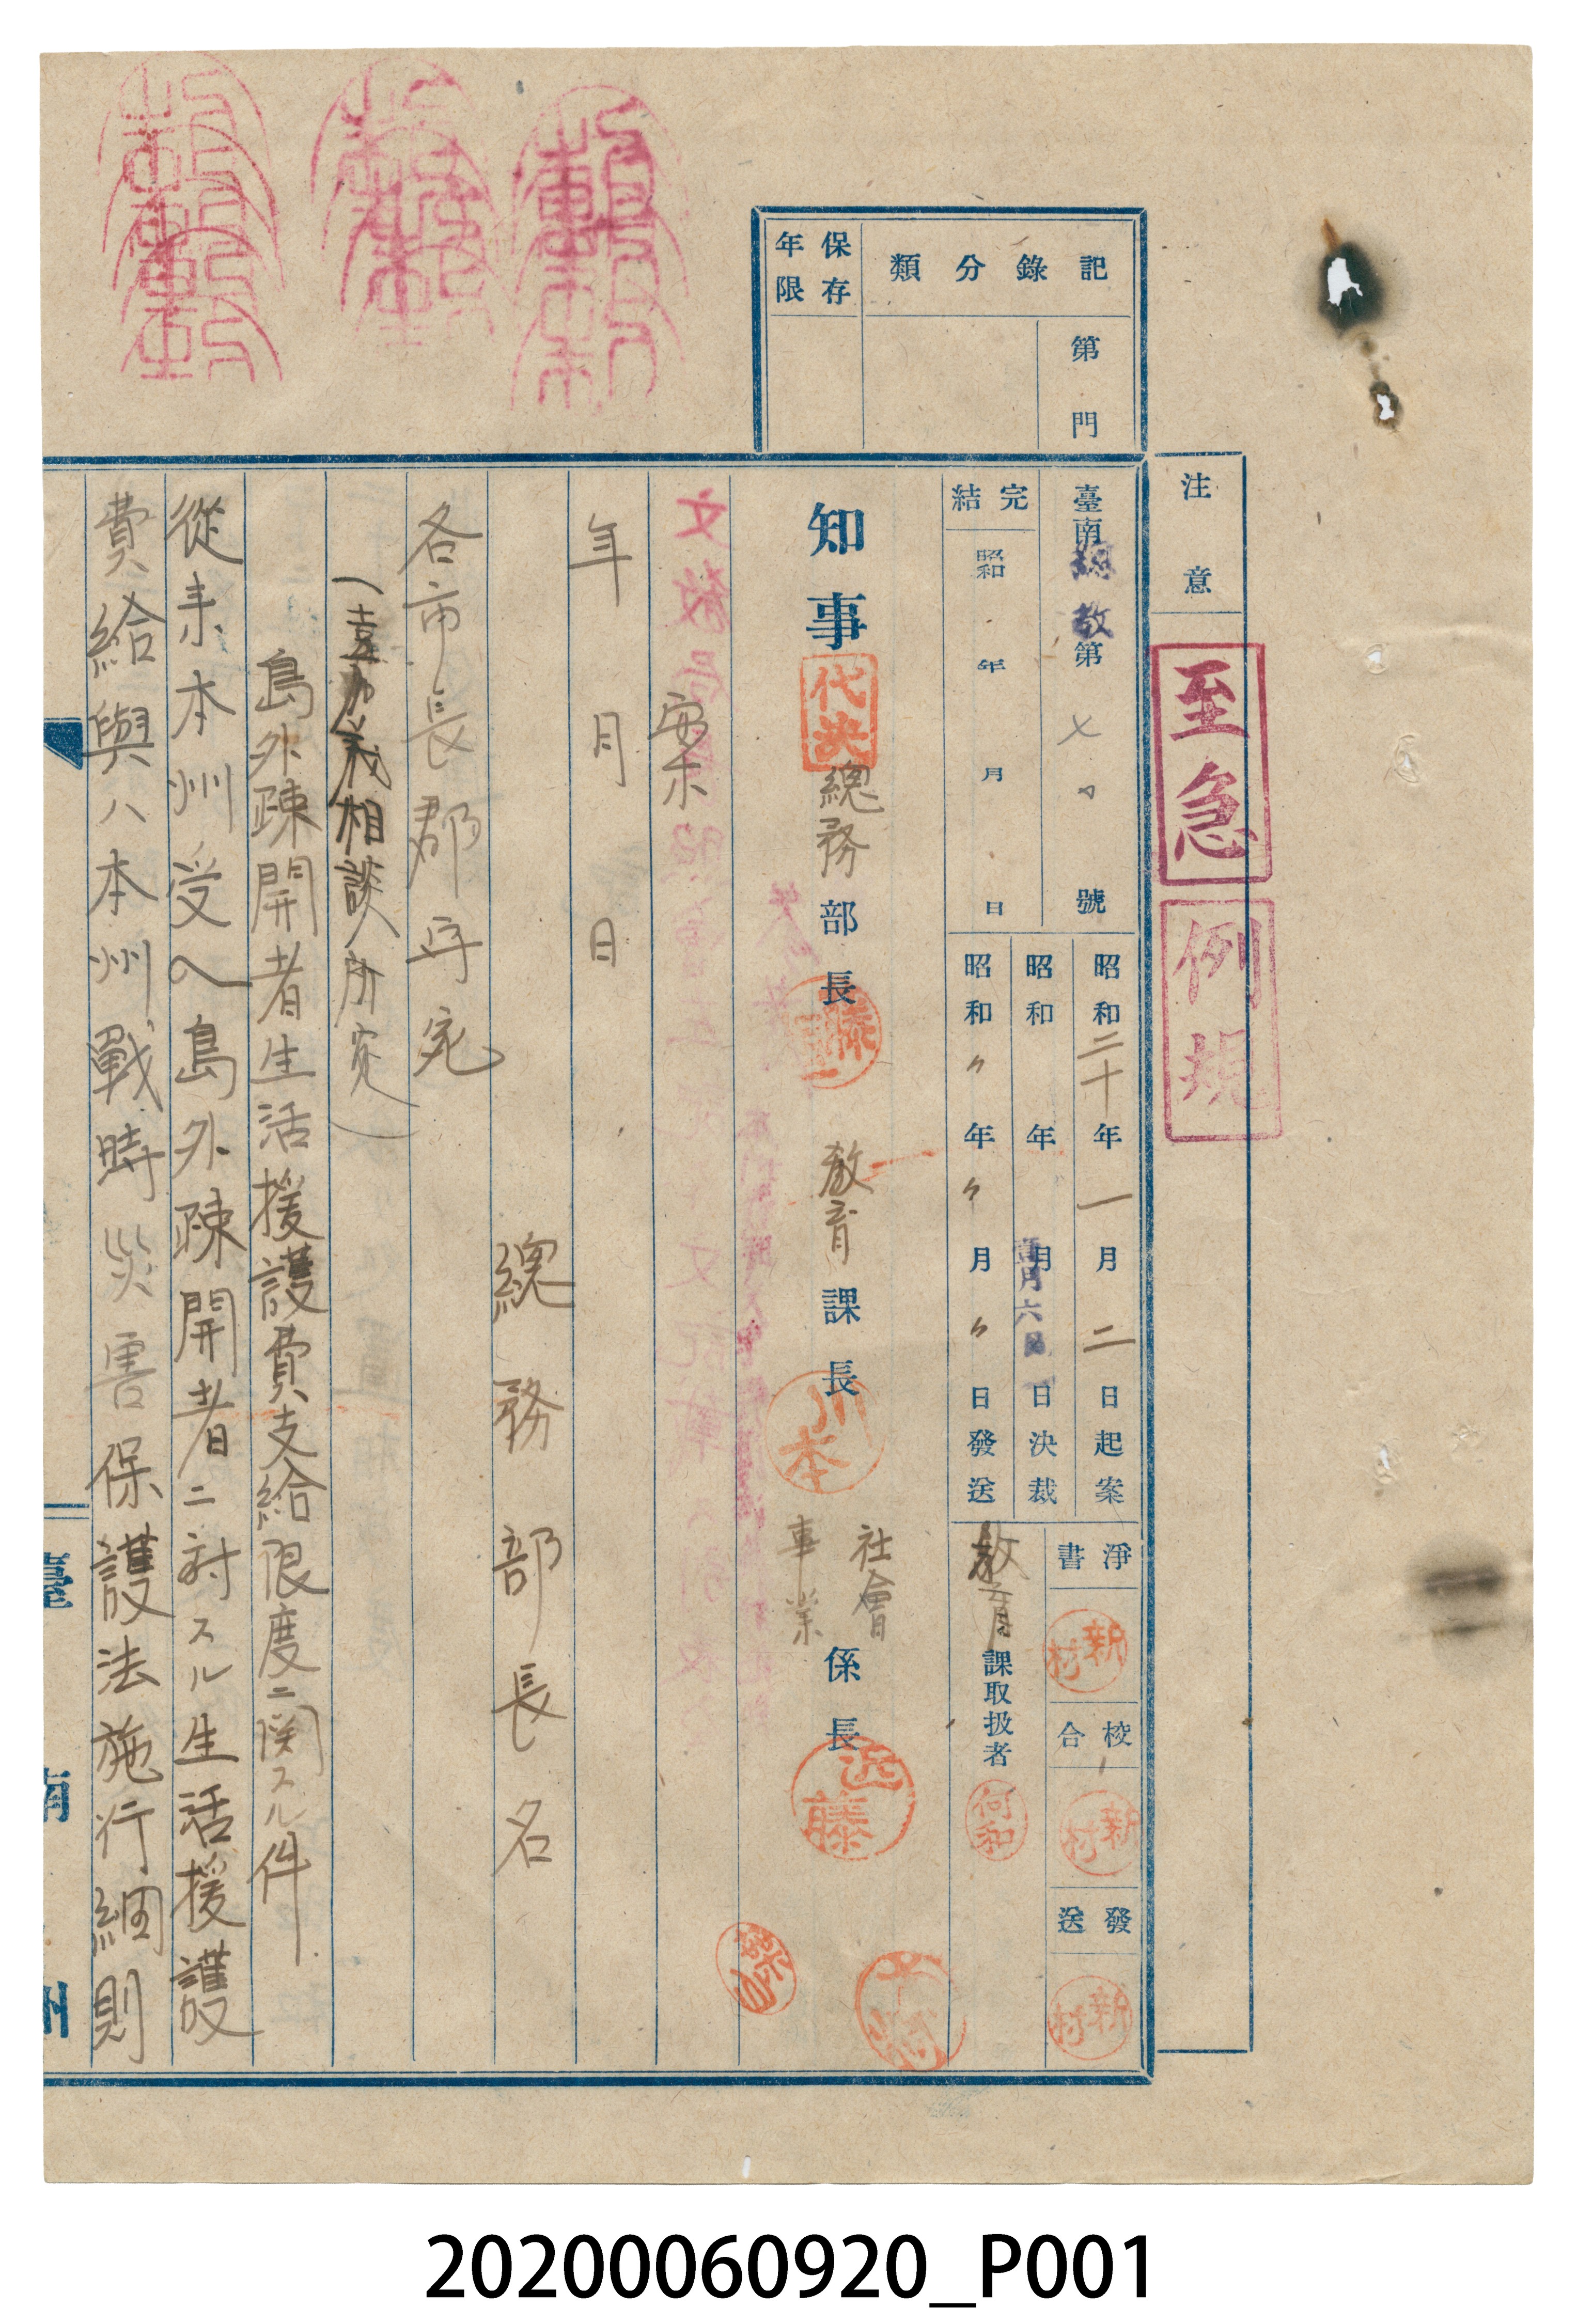 注意
至急
例規
記錄分類
第門
保存年限
臺南總教第 號
完結
昭和 年 月 日
昭和二十年一月二日起案
昭和 年 月六日決裁
昭和〃年〃月〃日發送
淨書
新村
校合
新村
發送
新村
教育課取扱者
知事
代決
總務部長
教育課長
川本
社會事業係長
近藤
案
年 月 日
總務部長名
各市長郡守宛
(嘉義相談所宛)
島外疎開者生活援護費支給限度ニ関スル件
從来本州受入島外疎開者ニ対スル生活援護
費給與ハ本州戰時災害保護法施行細則
臺南州
20200060920_P001